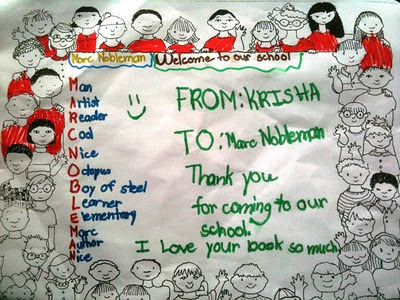 Marc Nobleman Welcome to our school
Man
Artist
Reader
Cool
Nice
Octopus
Boy of steel
Learner
Elementary
Marc
Author
Nice
FROM: KRISHA
TO: Marc Nobleman
Thank you
for coming to our
school.
I Love your book so much